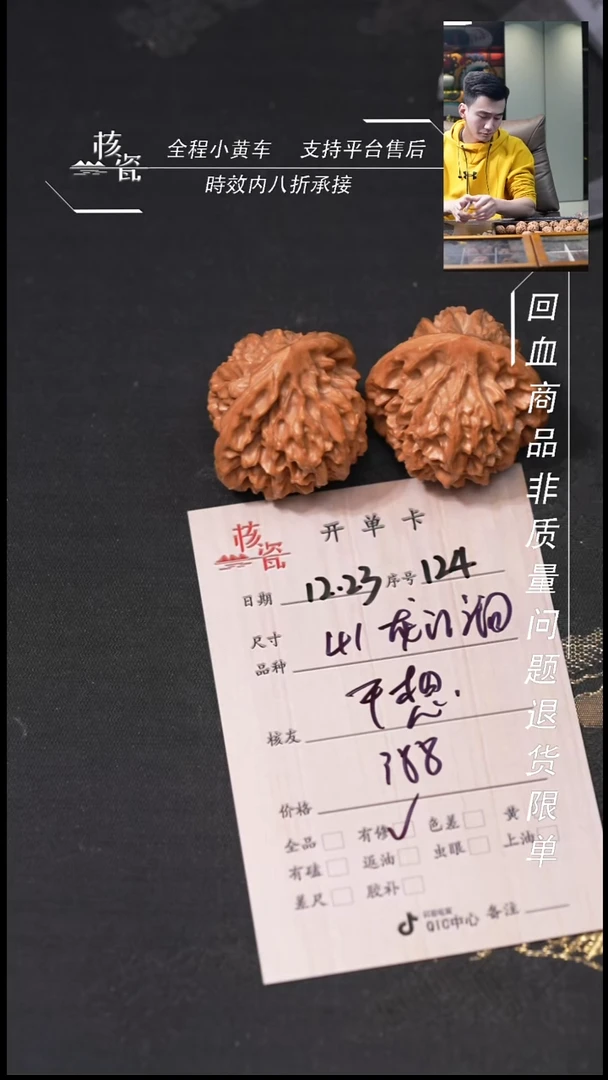 核瓷
全程小黄车 支持平台售后
時效内八折承接
回血商品非质量问题退货限单
核瓷
开单卡
日期 12.23 序号 124
尺寸 41
品种
核友
388
价格
全品 有修 色差 黄
有硅 返油 虫眼 上油
差尺 胶补
QIC中心 备注